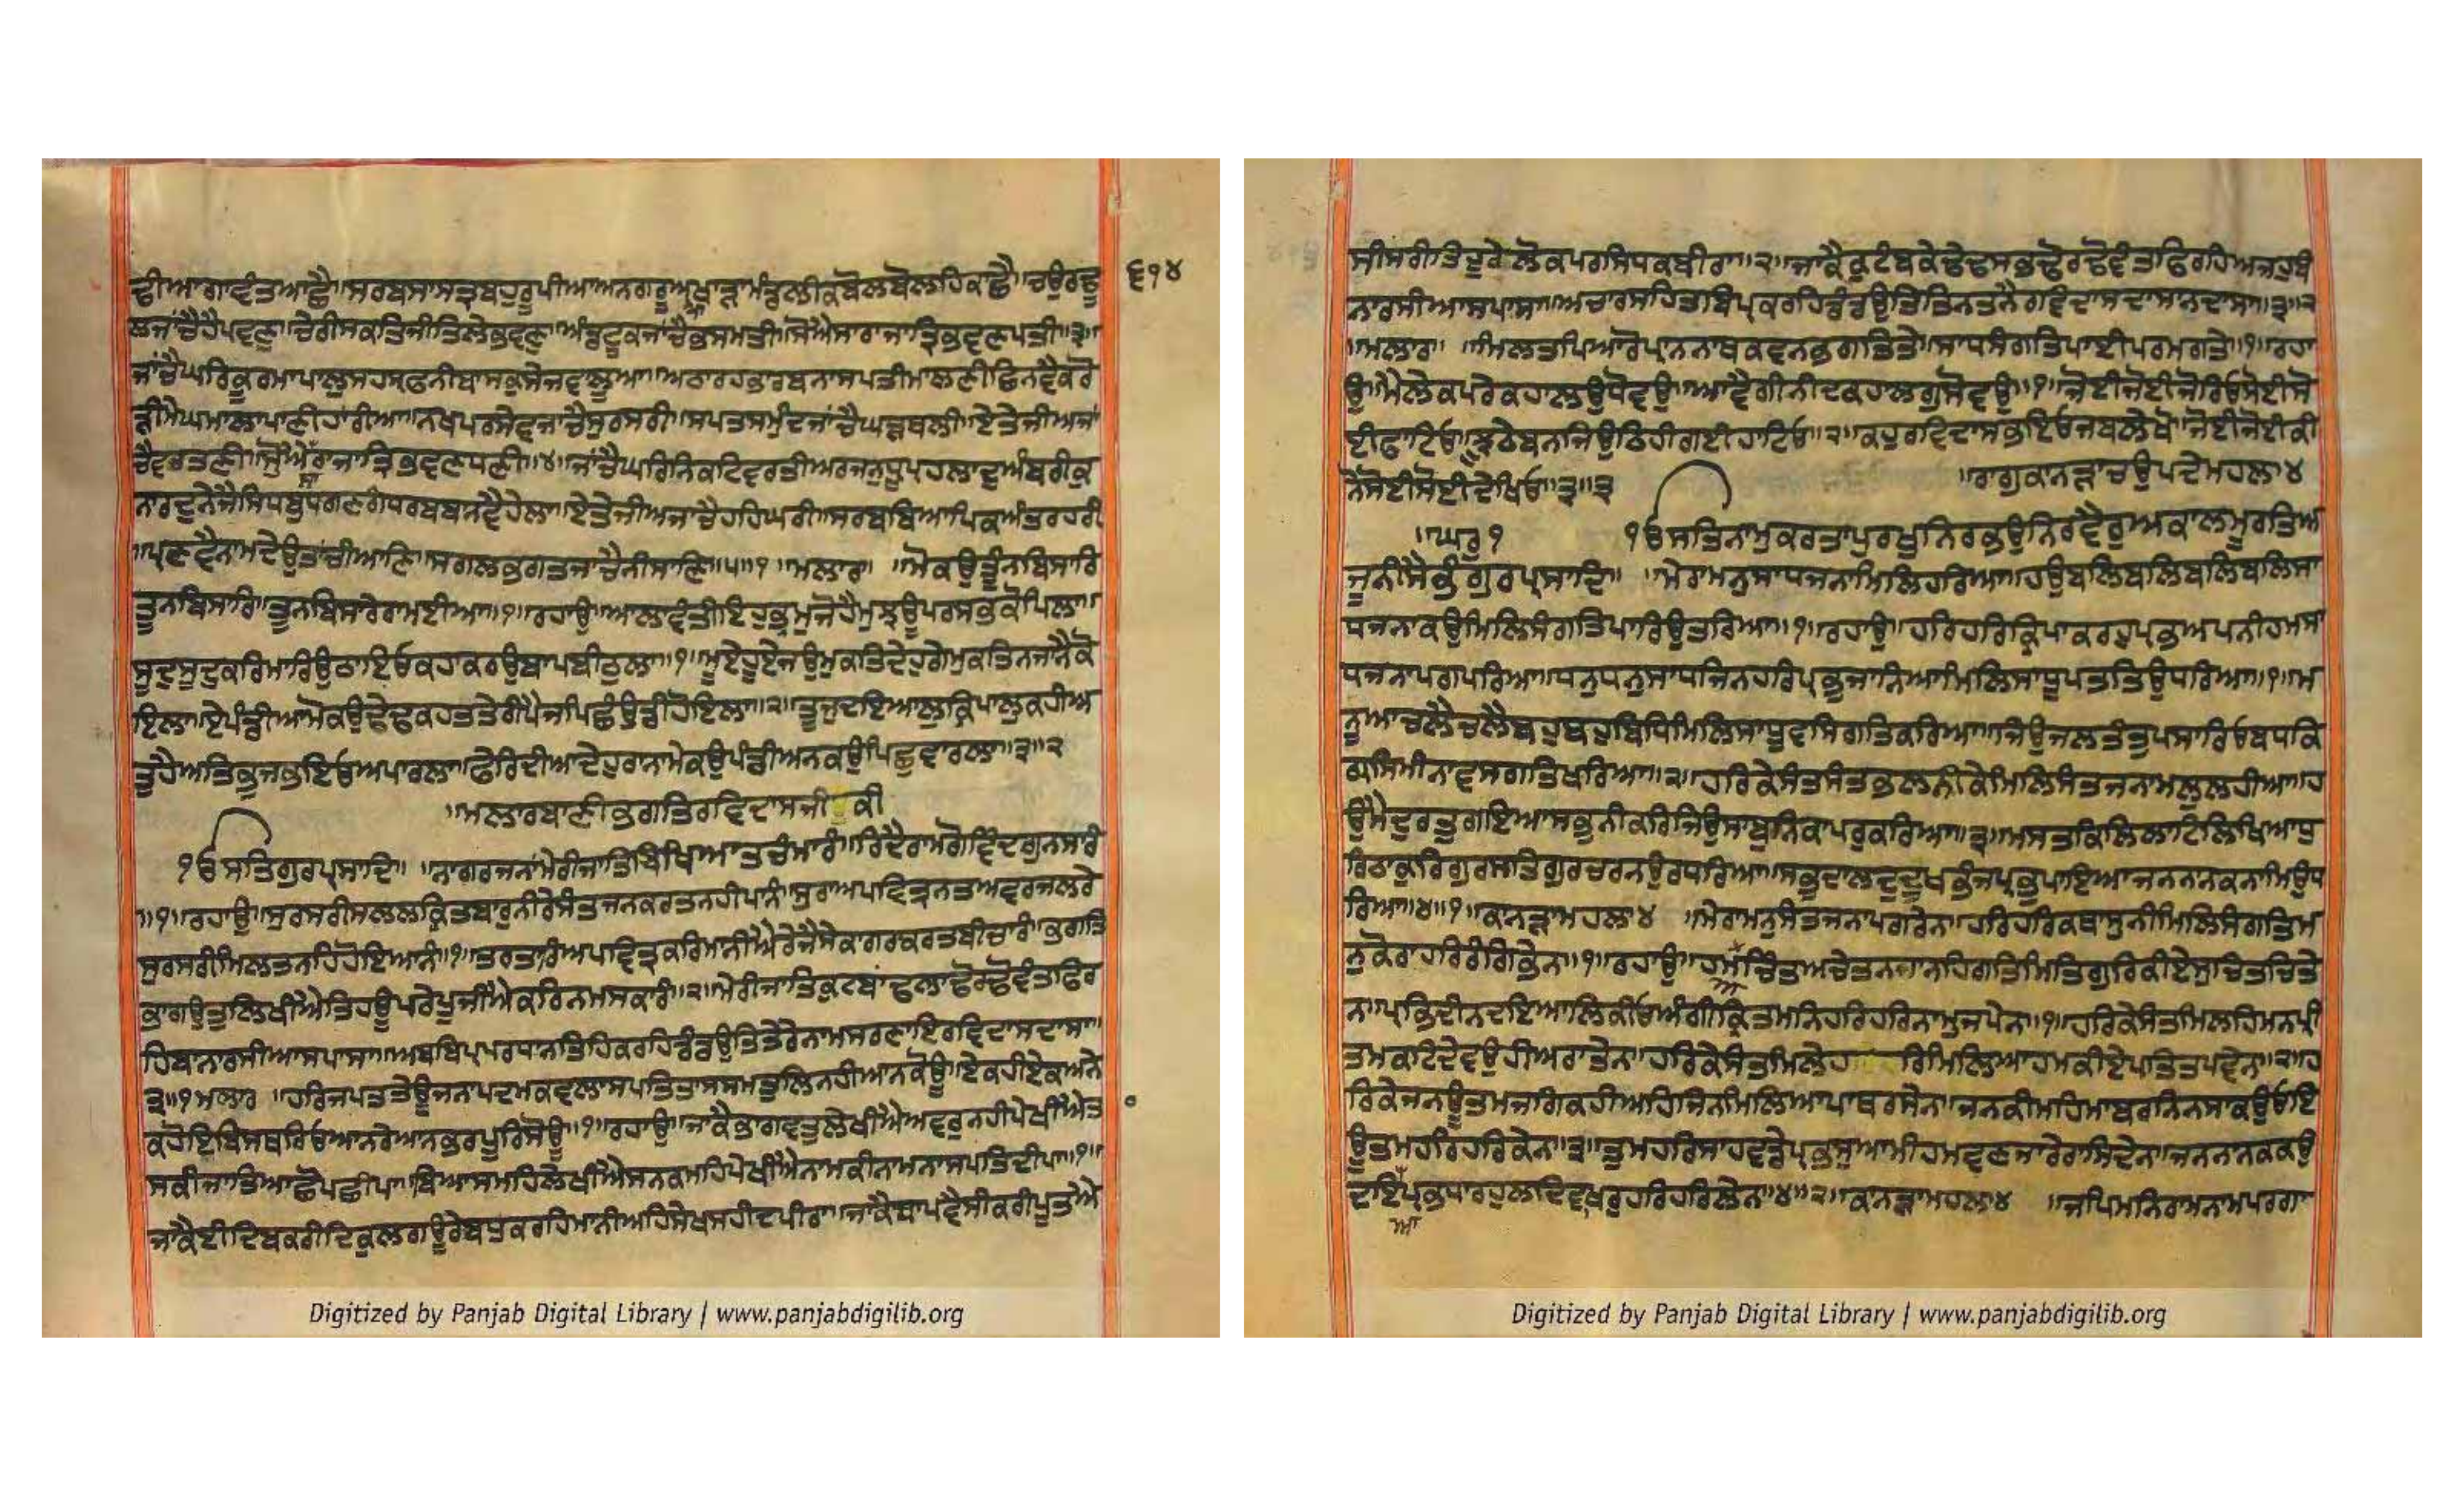 ਛੀਆਗਾਵੰਤਆਛੈ॥ਸਰਬਸਾਸਤ੍ਰਬਹੁਰੂਪੀਆਅਨਗਰੂਆਖਾੜਾਮੰਡਲੀਕਬੋਲਬੋਲਹਿਕਾਛੈ॥ਚਉਰਢੂ
੬੧੪
ਲਜਾਂਚੈਹੈਪਵਣੁ॥ਚੇਰੀਸਕਤਿਜੀਤਿਲੇਭਵਣੁ॥ਅੰਡਟੂਕਜਾਚੈਭਸਮਤੀ॥ਸੋਐਸਾਰਾਜਾਤ੍ਰਿਭਵਣਪਤੀ॥੩॥
ਜਾਂਚੈਘਰਿਕੂਰਮਾਪਾਲੁਸਹਸ੍ਰਫਨੀਬਾਸਕੁਸੇਜਵਾਲੂਆ॥ਅਠਾਰਹਭਾਰਬਨਾਸਪਤੀਮਾਲਣੀਛਿਨਵੈਕਰੋ
ੜੀਮੇਘਮਾਲਾਪਾਣੀਹਾਰੀਆ॥ਨਖਪਰਸੇਵਜਾਚੈਸੁਰਸਰੀ॥ਸਪਤਸਮੁੰਦਜਾਂਚੈਘੜਥਲੀ॥ਏਤੇਜੀਅਜਾਂ
ਚੈਵਰਤਣੀ॥ਸੋਐਸਾਰਾਜਾਤ੍ਰਿਭਵਣਧਣੀ॥੪॥ਜਾਂਚੈਘਰਿਨਿਕਟਿਵਰਤੀਅਰਜਨੁਧ੍ਰੂਪ੍ਰਹਲਾਦੁਅੰਬਰੀਕੁ
ਨਾਰਦੁਨੇਜੈਸਿਧਬੁਧਗਣਗੰਧਰਬਬਨਵੈਹੇਲਾ॥ਏਤੇਜੀਅਜਾਚੈਹਹਿਘਰੀ॥ਸਰਬਬਿਆਪਿਕਅੰਤਰਹਰੀ
॥ਪ੍ਰਣਵੈਨਾਮਦੇਉਤਾਂਚੀਆਣਿ॥ਸਗਲਭਗਤਜਾਚੈਨੀਸਾਣਿ॥੫॥੧॥ਮਲਾਰ॥ ॥ਮੋਕਉਤੂੰਨਬਿਸਾਰਿ
ਤੂਨਬਿਸਾਰਿ॥ਤੂਨਬਿਸਾਰੇਰਾਮਈਆ॥੧॥ਰਹਾਉ॥ਆਲਾਵੰਤੀਇਹੁਭ੍ਰਮੁਜੋਹੈਮੁਝਊਪਰਸਭਕੋਪਿਲਾ॥
ਸੂਦੁਸੂਦੁਕਰਿਮਾਰਿਉਠਾਇਓਕਹਾਕਰਉਬਾਪਬੀਠੁਲਾ॥੧॥ਮੂਏਹੂਏਜਉਮੁਕਤਿਦੇਹੁਗੇਮੁਕਤਿਨਜਾਨੈਕੋ
ਇਲਾ॥ਏਪੰਡੀਆਮੋਕਉਢੇਢਕਹਤਤੇਰੀਪੈਜਪਿਛੰਉਡੀਹੋਇਲਾ॥੨॥ਤੂਜੁਦਇਆਲੁਕ੍ਰਿਪਾਲੁਕਹੀਅ
ਤੁਹੈਂਅਤਿਭੁਜਭਇਓਅਪਾਰਲਾ॥ਫੇਰਿਦੀਆਦੇਹੁਰਾਨਾਮੇਕਉਪੰਡੀਅਨਕਉਪਿਛੁਵਾਰਲਾ॥੩॥੨
॥ਮਲਾਰਬਾਣੀਭਗਤਿਰਵਿਦਾਸਜੀ ਕੀ
ੴਸਤਿਗੁਰਪ੍ਰਸਾਦਿ॥ ॥ਨਾਗਰਜਨਾਂਮੇਰੀਜਾਤਿਬਿਖਿਆਤਚੰਮਾਰੰ॥ਰਿਦੈਰਾਮਗੋਵਿੰਦਗੁਨਸਾਰੰ
॥੧॥ਰਹਾਉ॥ਸੁਰਸਰੀਸਲਲਕ੍ਰਿਤਬਾਰੁਨੀਰੇਸੰਤਜਨਕਰਤਨਹੀਪਾਨੰ॥ਸੁਰਾਅਪਵਿਤ੍ਰਨਤਅਵਰਜਲਰੇ
ਸੁਰਸਰੀਮਿਲਤਨਹਿਹੋਇਆਨੰ॥੧॥ਤਰਤਾਰਿਅਪਵਿਤ੍ਰਕਰਿਮਾਨੀਐਰੇਜੈਸੇਕਾਗਰਕਰਤਬੀਚਾਰੰ॥ਭਗਤਿ
ਭਾਗਉਤੁਲਿਖੀਐਤਿਹਊਪਰੇਪੂਜੀਐਕਰਿਨਮਸਕਾਰੰ॥੨॥ਮੇਰੀਜਾਤਿਕੁਟਬਾਂਢਲਾਢੋਰਢੋਵੰਤਫਿਰ
ਹਿਬਾਨਾਰਸੀਆਸਪਾਸਾ॥ਅਬਬਿਪ੍ਰਪਰਧਾਨਤਿਹਿਕਰਹਿਡੰਡਉਤਿਤੇਰੇਨਾਮਸਰਣਾਇਰਵਿਦਾਸਦਾਸਾ॥
੩॥੧ਮਲਾਰ ॥ਹਰਿਜਪਤਤੇਊਜਨਾਪਦਮਕਵਲਾਸਪਤਿਤਾਸਸਮਤੁਲਿਨਹੀਆਨਕੋਊ॥ਏਕਹੀਏਕਅਨੇ
ਕਹੋਇਬਿਸਥਰਿਓਆਨਰੇਆਨਭਰਪੂਰਿਸੋਊ॥੧॥ਰਹਾਉ॥ਜਾਕੈਭਾਗਵਤੁਲੇਖੀਐਅਵਰੁਨਹੀਪੇਖੀਐਤ
ਸਕੀਜਾਤਿਆਛੋਪਛੀਪਾ॥ਬਿਆਸਮਹਿਲੇਖੀਐਸਨਕਮਹਿਪੇਖੀਐਨਾਮਕੀਨਾਮਨਾਸਪਤਿਦੀਪਾ॥੧॥
ਜਾਕੈਈਦਿਬਕਰੀਦਿਕੁਲਗਊਰੇਬਧੁਕਰਹਿਮਾਨੀਅਹਿਸੇਖਸਹੀਦਪੀਰਾ॥ਜਾਕੈਬਾਪਵੈਸੀਕਰੀਪੂਤਐ
ਸੀਸਰੀਤਿਹੁਰੇਲੋਕਪਰਸਿਧਕਬੀਰਾ॥੨॥ਜਾਕੈਕੁਟੰਬਕੇਢੇਢਸਭਢੋਰਢੋਵੰਤਫਿਰਹਿਅਜਹੁਬੰ
ਨਾਰਸੀਆਸਪਾਸਾ॥ਅਚਾਰਸਹਿਤਬਿਪ੍ਰਕਰਹਿਡੰਡਉਤਿਤਿਨਤਨੈਰਵਿਦਾਸਦਾਸਾਨਦਾਸਾ॥੩॥੨
॥ਮਲਾਰ॥ ॥ਮਿਲਤਪਿਆਰੋਪ੍ਰਾਨਨਾਥਕਵਨਭਗਤਿਤੇ॥ਸਾਧਸੰਗਤਿਪਾਈਪਰਮਗਤੇ॥੧॥ਰਹਾ
ਉ॥ਮੈਲੇਕਪਰੇਕਹਾਲਉਧੋਵਉ॥ਆਵੈਗੀਨੀਦਕਹਾਲਗੁਸੋਵਉ॥੧॥ਜੋਈਜੋਈਜੋਰਿਓਸੋਈਸੋ
ਈਫਾਟਿਓ॥ਝੂਠੈਬਨਜਿਉਠਿਹੀਗਈਹਾਟਿਓ॥੨॥ਕਹੁਰਵਿਦਾਸਭਇਓਜਬਲੇਖੋ॥ਜੋਈਜੋਈਕੀ
ਨੋਸੋਈਸੋਈਦੇਖਿਓ॥੩॥੩ ॥ਰਾਗੁਕਾਨੜਾਚਉਪਦੇਮਹਲਾ੪
॥ਘਰੁ੧ ੴਸਤਿਨਾਮੁਕਰਤਾਪੁਰਖੁਨਿਰਭਉਨਿਰਵੈਰੁਅਕਾਲਮੂਰਤਿਅ
ਜੂਨੀਸੈਭੰਗੁਰਪ੍ਰਸਾਦਿ॥ ॥ਮੇਰਾਮਨੁਸਾਧਜਨਾਮਿਲਿਹਰਿਆ॥ਹਉਬਲਿਬਲਿਬਲਿਬਲਿਸਾ
ਧਜਨਾਕਉਮਿਲਿਸੰਗਤਿਪਾਰਿਉਤਰਿਆ॥੧॥ਰਹਾਉ॥ਹਰਿਹਰਿਕ੍ਰਿਪਾਕਰਹੁਪ੍ਰਭਅਪਨੀਹਮਸਾ
ਧਜਨਾਪਗਪਰਿਆ॥ਧਨੁਧਨੁਸਾਧਜਿਨਹਰਿਪ੍ਰਭੁਜਾਨਿਆਮਿਲਿਸਾਧੂਪਤਤਿਉਧਰਿਆ॥੧॥ਮ
ਨੂਆਚਲੈਚਲੈਬਹੁਬਹੁਬਿਧਿਮਿਲਿਸਾਧੂਵਸਿਗਤਿਕਰਿਆ॥ਜਿਉਜਲਤੰਤੁਪਸਾਰਿਓਬਧਕਿ
ਗ੍ਰਸਿਮੀਨਾਵਸਗਤਿਖਰਿਆ॥੨॥ਹਰਿਕੇਸੰਤਸੰਤਭਲਨੀਕੇਮਿਲਿਸੰਤਜਨਾਮਲੁਲਹੀਆ॥ਹ
ਉਮੈਦੁਰਤੁਗਇਆਸਭੁਨੀਕਰਿਜਿਉਸਾਬੁਨਿਕਾਪਰੁਕਰਿਆ॥੩॥ਮਸਤਕਿਲਿਲਾਟਿਲਿਖਿਆਧੁ
ਰਿਠਾਕੁਰਿਗੁਰਸਤਿਗੁਰਚਰਨਉਰਧਰਿਆ॥ਸਭੁਦਾਲਦੁਦੂਖਭੰਜਪ੍ਰਭੁਪਾਇਆਜਨਨਾਨਕਨਾਮਿਉਧ
ਰਿਆ॥੪॥੧॥ਕਾਨੜਾਮਹਲਾ੪ ॥ਮੇਰਾਮਨੁਸੰਤਜਨਾਪਗਰੇਨ॥ਹਰਿਹਰਿਕਥਾਸੁਨੀਮਿਲਿਸੰਗਤਿਮ
ਨੁਕੋਰਾਹਰਿਰੰਗਿਭੇਨ॥੧॥ਰਹਾਉ॥ਹਮਚਿਤਅਚੇਤਨਜਾਨਹਿਗਤਿਮਿਤਿਗੁਰਿਕੀਏਸੁਚਿਤਚਿਤੇ
ਨ॥ਪ੍ਰਭਿਦੀਨਦਇਆਲਿਕੀਓਅੰਗੀਕ੍ਰਿਤਮਨਿਹਰਿਹਰਿਨਾਮੁਜਪੇਨ॥੧॥ਹਰਿਕੇਸੰਤਮਿਲਹਿਮਨਪ੍ਰੀ
ਤਮਕਟਿਦੇਵਉਹੀਅਰਾਤੇਨ॥ਹਰਿਕੇਸੰਤਮਿਲੇਹ ਰਿਮਿਲਿਆਹਮਕੀਏਪਤਿਤਪਵੇਨ॥੨॥ਹ
ਰਿਕੇਜਨਊਤਮਜਗਿਕਹੀਅਹਿਜਿਨਮਿਲਿਆਪਾਥਰਸੇਨ॥ਜਨਕੀਮਹਿਮਾਬਰਨਿਨਸਾਕਉਓਇ
ਊਤਮਹਰਿਹਰਿਕੇਨ॥੩॥ਤੁਮਹਰਿਸਾਹਵਡੇਪ੍ਰਭਸੁਆਮੀਹਮਵਣਜਾਰੇਰਾਸਿਦੇਨ॥ਜਨਨਾਨਕਕਉ
ਦਇਪ੍ਰਭਧਾਰਹੁਲਦਿਵਾਖਰੁਹਰਿਹਰਿਲੇਨ॥੪॥੨॥ਕਾਨੜਾਮਹਲਾ੪ ॥ਜਪਿਮਨਿਰਾਮਨਾਮਪਰਗਾ
ਆ
Digitized by Panjab Digital Library | www.panjabdigilib.org
Digitized by Panjab Digital Library | www.panjabdigilib.org